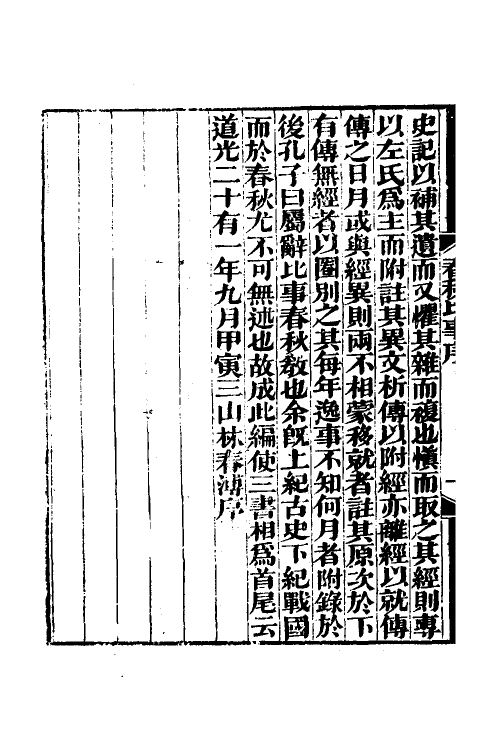 史記以補其遺而又懼其雜而複也愼而取之其經則專
以左氏爲主而附註其異文析傳以附經亦離經以就傳
傳之日月或與經異則兩不相蒙移就者註其原次於下
有傳無經者以圈別之其每年逸事不知何月者附錄於
後孔子曰屬辭比事春秋敎也余旣上紀古史下紀戰國
而於春秋尤不可無述也故成此編使三書相爲首尾云
道光二十有一年九月甲寅三山林春溥序